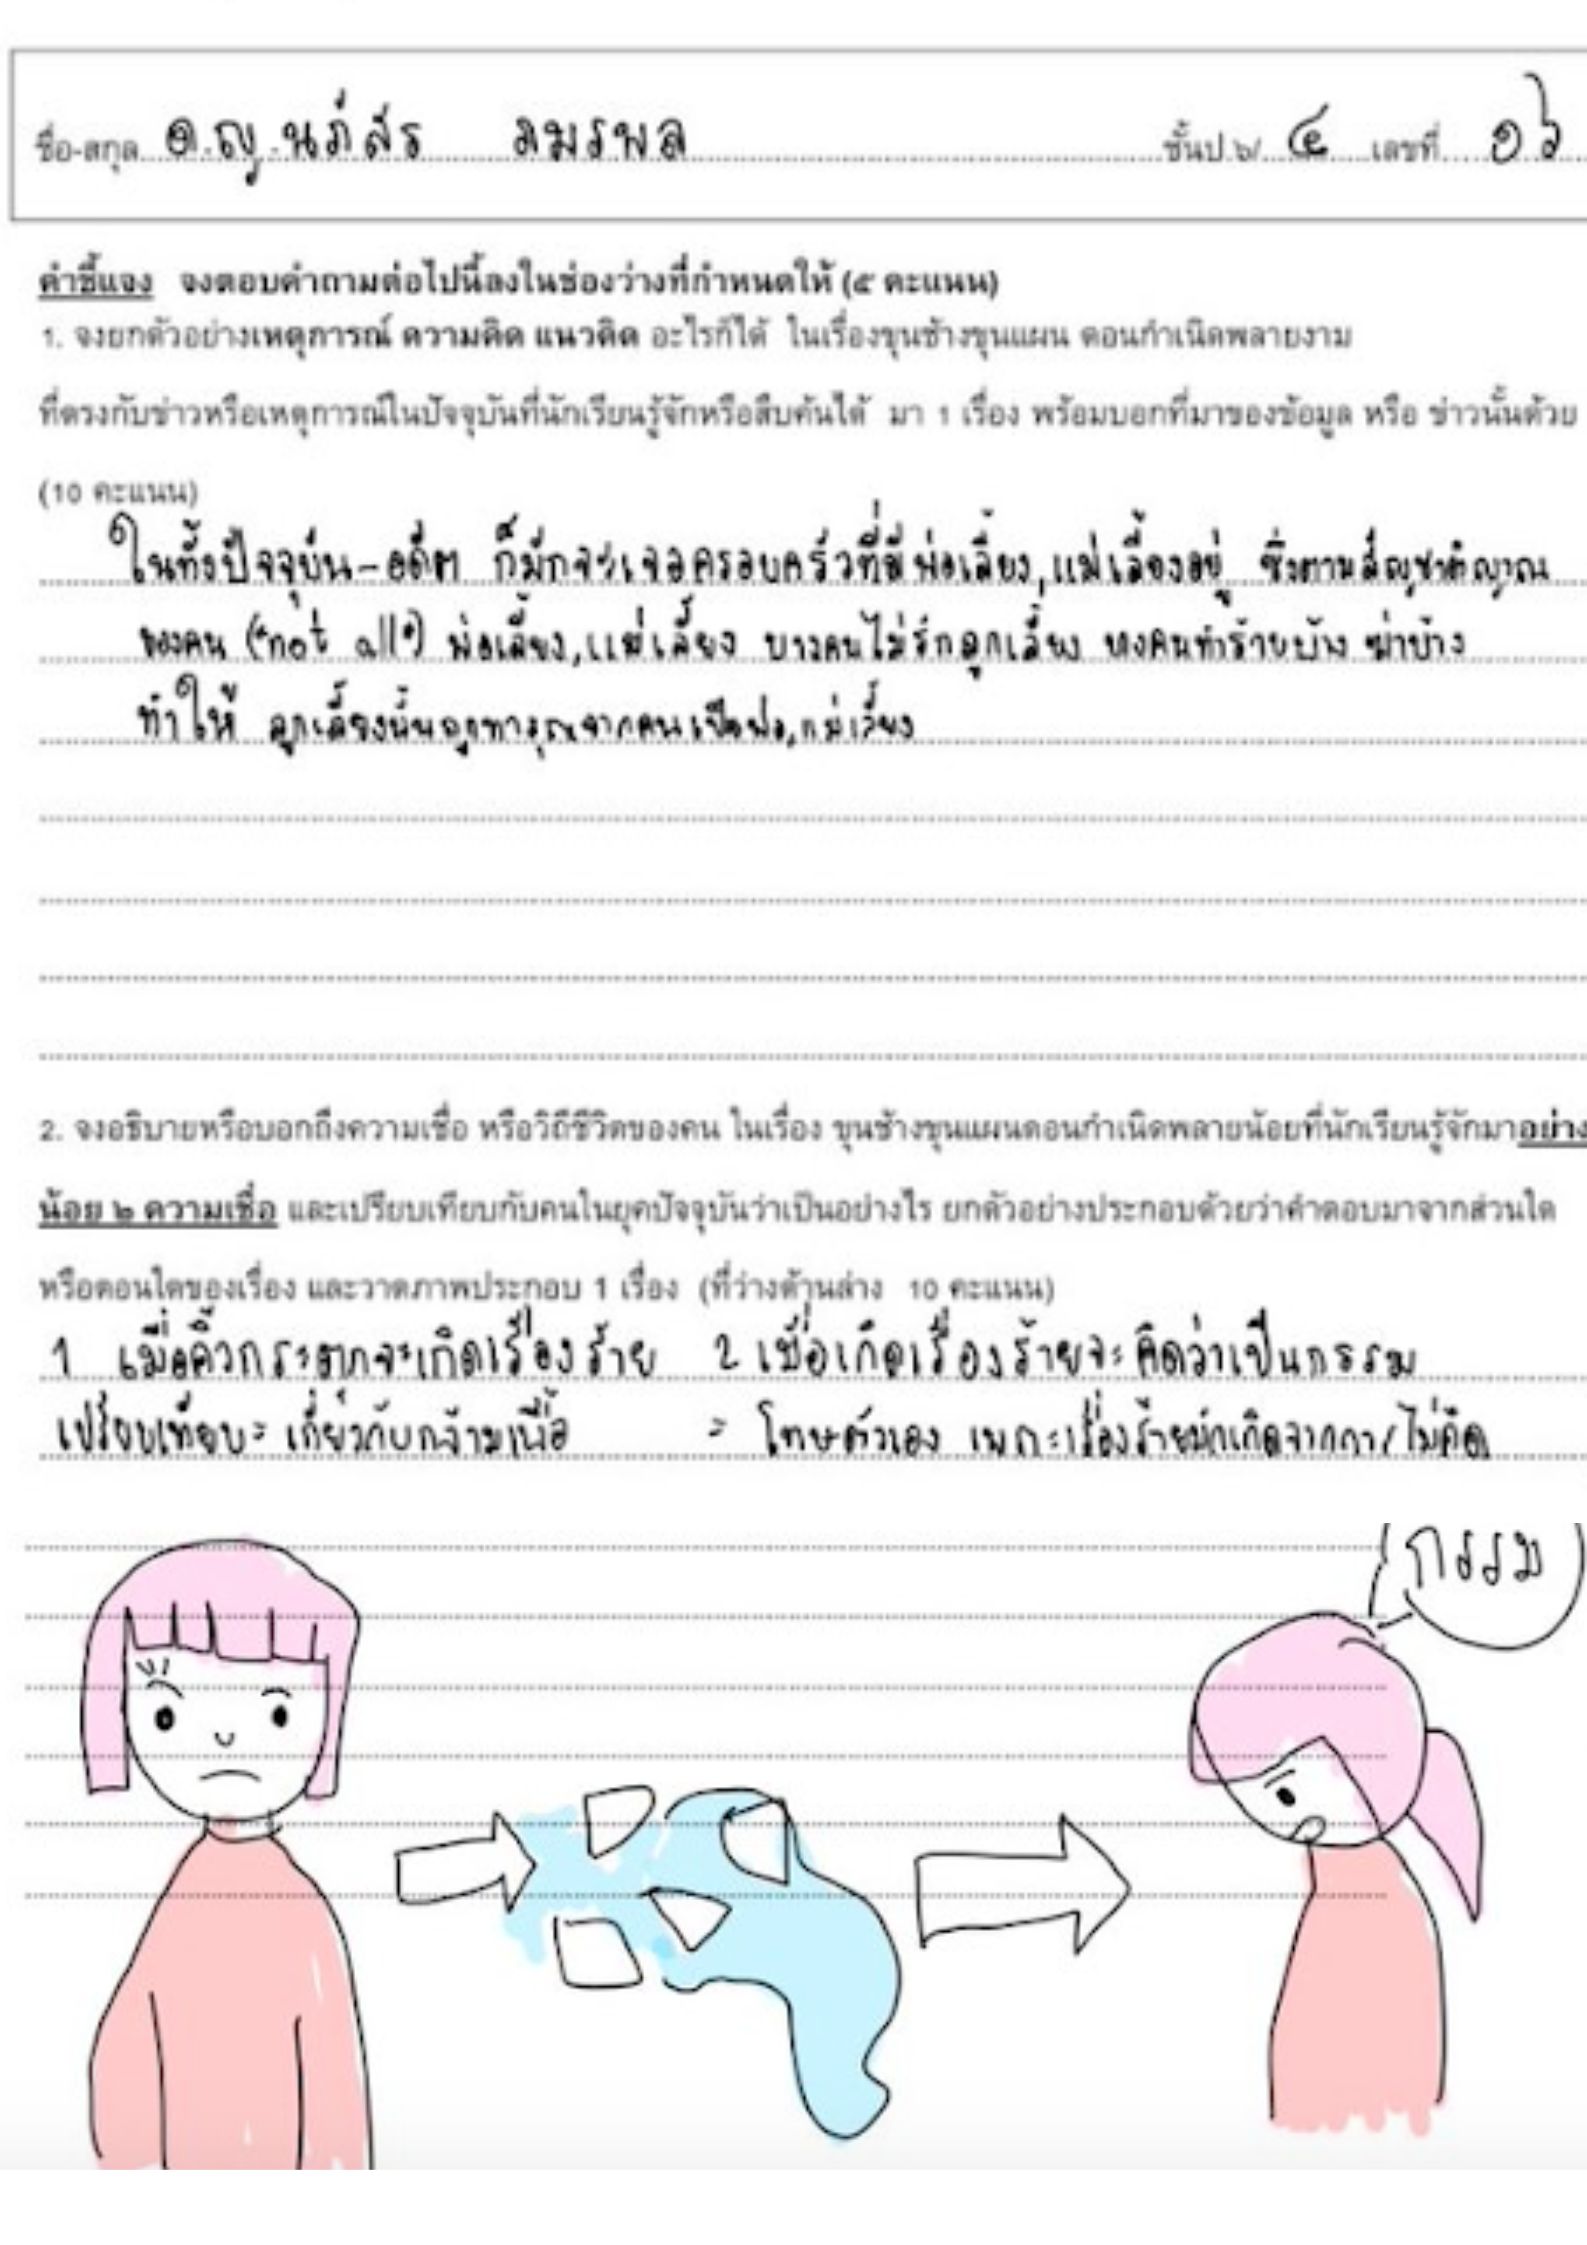 ชื่อ-สกุล ด.ญ.นภัสร อมรพล ชั้นป.๖/ ๔ เลขที่ ๑๖
คำชี้แจง จงตอบคำถามต่อไปนี้ลงในช่องว่างที่กำหนดให้ (๕ คะแนน)
1. จงยกตัวอย่างเหตุการณ์ ความคิด แนวคิด อะไรก็ได้ ในเรื่องขุนช้างขุนแผน ตอนกำเนิดพลายงาม
ที่ตรงกับข่าวหรือเหตุการณ์ในปัจจุบันที่นักเรียนรู้จักหรือสืบค้นได้ มา 1 เรื่อง พร้อมบอกที่มาของข้อมูล หรือ ข่าวนั้นด้วย
(10 คะแนน)
ในทั้งปัจจุบัน-อดีต ก็มักจะเจอครอบครัวที่มีพ่อเลี้ยง,แม่เลี้ยงอยู่ ซึ่งตามสัญชาติญาณ
ของคน (*not all*) พ่อเลี้ยง,แม่เลี้ยง บางคนไม่รักลูกเลี้ยง บางคนทำร้ายบ้าง ฆ่าบ้าง
ทำให้ ลูกเลี้ยงนั้นถูกทารุณจากคนเป็นพ่อ,แม่เลี้ยง
2. จงอธิบายหรือบอกถึงความเชื่อ หรือวิถีชีวิตของคน ในเรื่อง ขุนช้างขุนแผนตอนกำเนิดพลายน้อยที่นักเรียนรู้จักมาอย่าง
น้อย ๒ ความเชื่อ และเปรียบเทียบกับคนในยุคปัจจุบันว่าเป็นอย่างไร ยกตัวอย่างประกอบด้วยว่าคำตอบมาจากส่วนใด
หรือตอนใดของเรื่อง และวาดภาพประกอบ 1 เรื่อง (ที่ว่างด้านล่าง 10 คะแนน)
1 เมื่อคิ้วกระตุกจะเกิดเรื่องร้าย 2 เมื่อเกิดเรื่องร้ายจะคิดว่าเป็นกรรม
เปรียบเทียบ= เกี่ยวกับกล้ามเนื้อ = โทษตัวเอง เพราะเรื่องร้ายมักเกิดจากการไม่คิด
กรรม